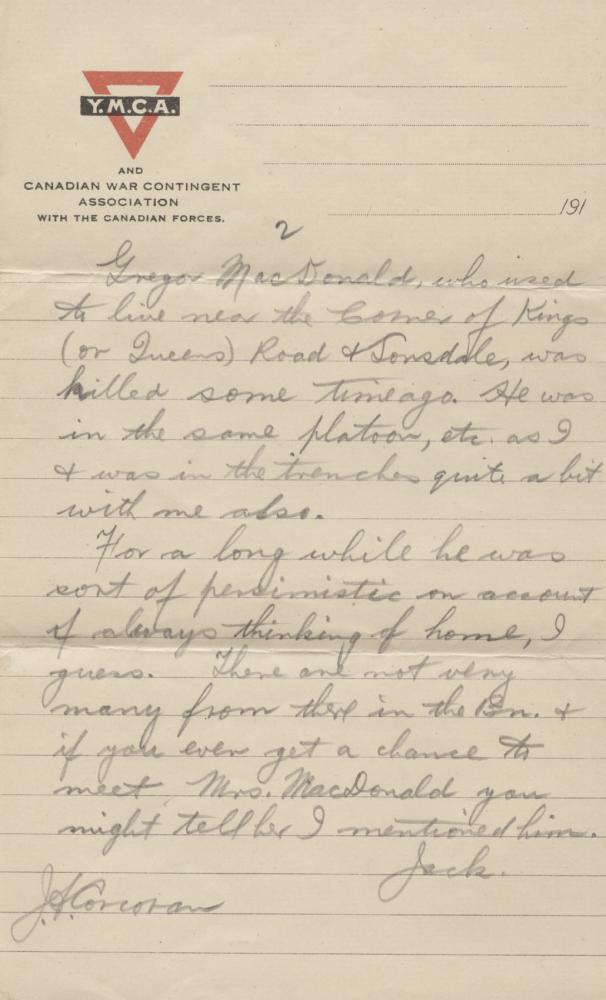 Y.M.C.A.
AND
CANADIAN WAR CONTINGENT
ASSOCIATION
WITH THE CANADIAN FORCES.
191
2
Gregor MacDonald, who used
to live near the Corner of Kings
(or Queens) Road & Lonsdale, was
killed some time ago. He was
in the same platoon, etc. as I
& was in the trenches quite a bit
with me also.
For a long while he was
sort of pessimistic on account
of always thinking of home, I
guess. There are not very
many from there in the Bn. &
if you ever get a chance to
meet Mrs. MacDonald you
might tell her I mentioned him.
Jack.
J.A. Corcoran